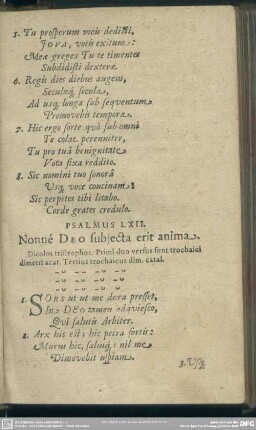 5. Tu prosperum meis dedisti,
JOVA, votis exitum:
Meæ greges Tu te timentes
Subdidisti dexteræ.
6. Regis dies diebus augens,
Seculisq́; secula,
Ad usq; longa sub seqventum
Promovebis tempora.
7. Hic ergo forte qvò sub omni
Te colat perenniter,
Tu pro tuâ benignitate
Vota fixa reddito.
8. Sic nomini tuo sonorâ
Usq; voce concinam:
Sic perpites tibi litabo.
Corde grates credulo.
PSALMUS LXII.
Nonnè DEO subjecta erit anima.
Dicolos tristrophos. Primi duo versus sunt trochaici
dimetri acat. Tertius trochaicus dim. catal.
1. SORS ut ut me dura presset,
In DEO tamen adqviesco,
Qvi salutis Arbiter.
2. Arx hic est; hic petra fortis:
Murus hic, salusq́;: nil me
Dimovebit uspiam.
3. Usq;